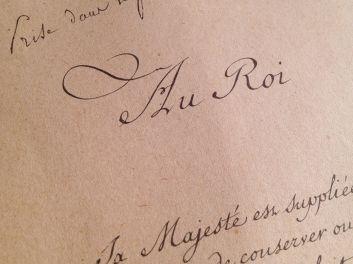 Prise dans
Au Roi
Sa Majesté est suppliée
de conserver ou